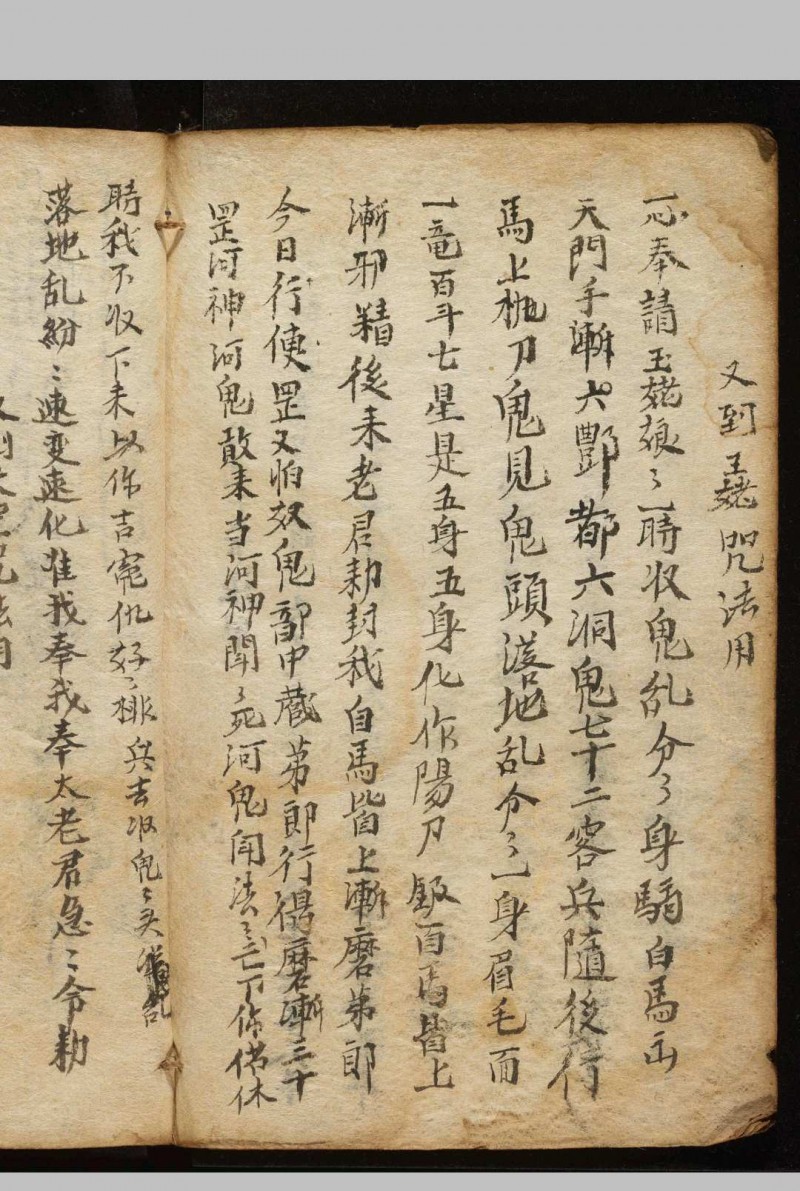 又到玉姥咒法用
一心奉請玉姥娘〻一時收鬼乱分〻身騎白馬出
天門手漸六酆都六洞鬼七十二客兵隨後行
馬上抛刀鬼見鬼頭落地乱分〻一身眉毛而
一竜百斗七星是五身五身化作陽刀鈒百馬皆上
漸邪精後来老君勅封我自馬皆上漸磨苐郎
今日行使罡又怕奴鬼部中蔵苐郎行得磨漸三十
罡河神河鬼敢来当河神聞〻死河鬼闻法〻亡下你供休
時我不收下未以你吉寃仇好〻排兵去收鬼〻头落
落地乱紛〻速变速化准我奉我奉太老君急〻令勅